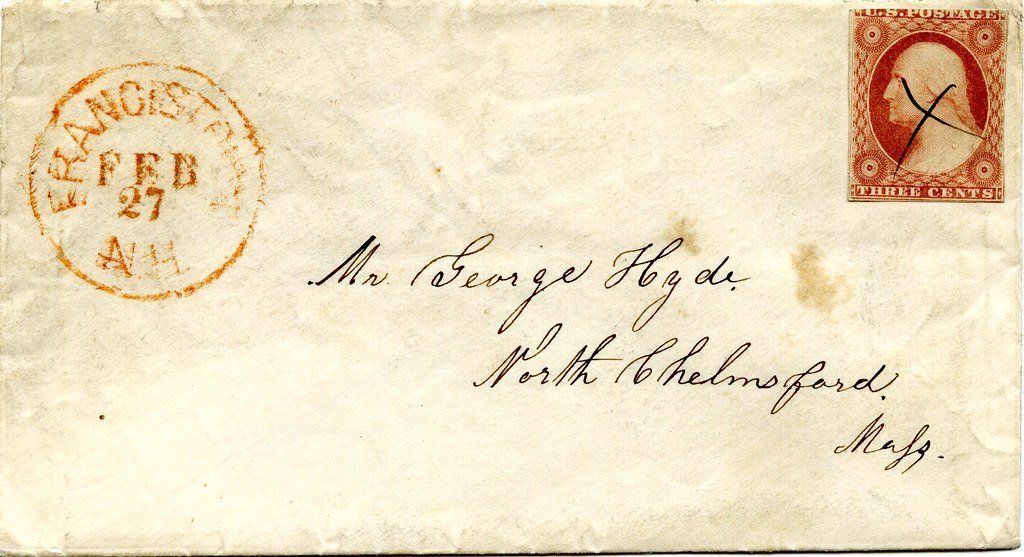 FRANCESTOWN
FEB
27
N.H.
U.S. POSTAGE
THREE CENTS
Mr. George Hyde.
North Chelmsford.
Mass.